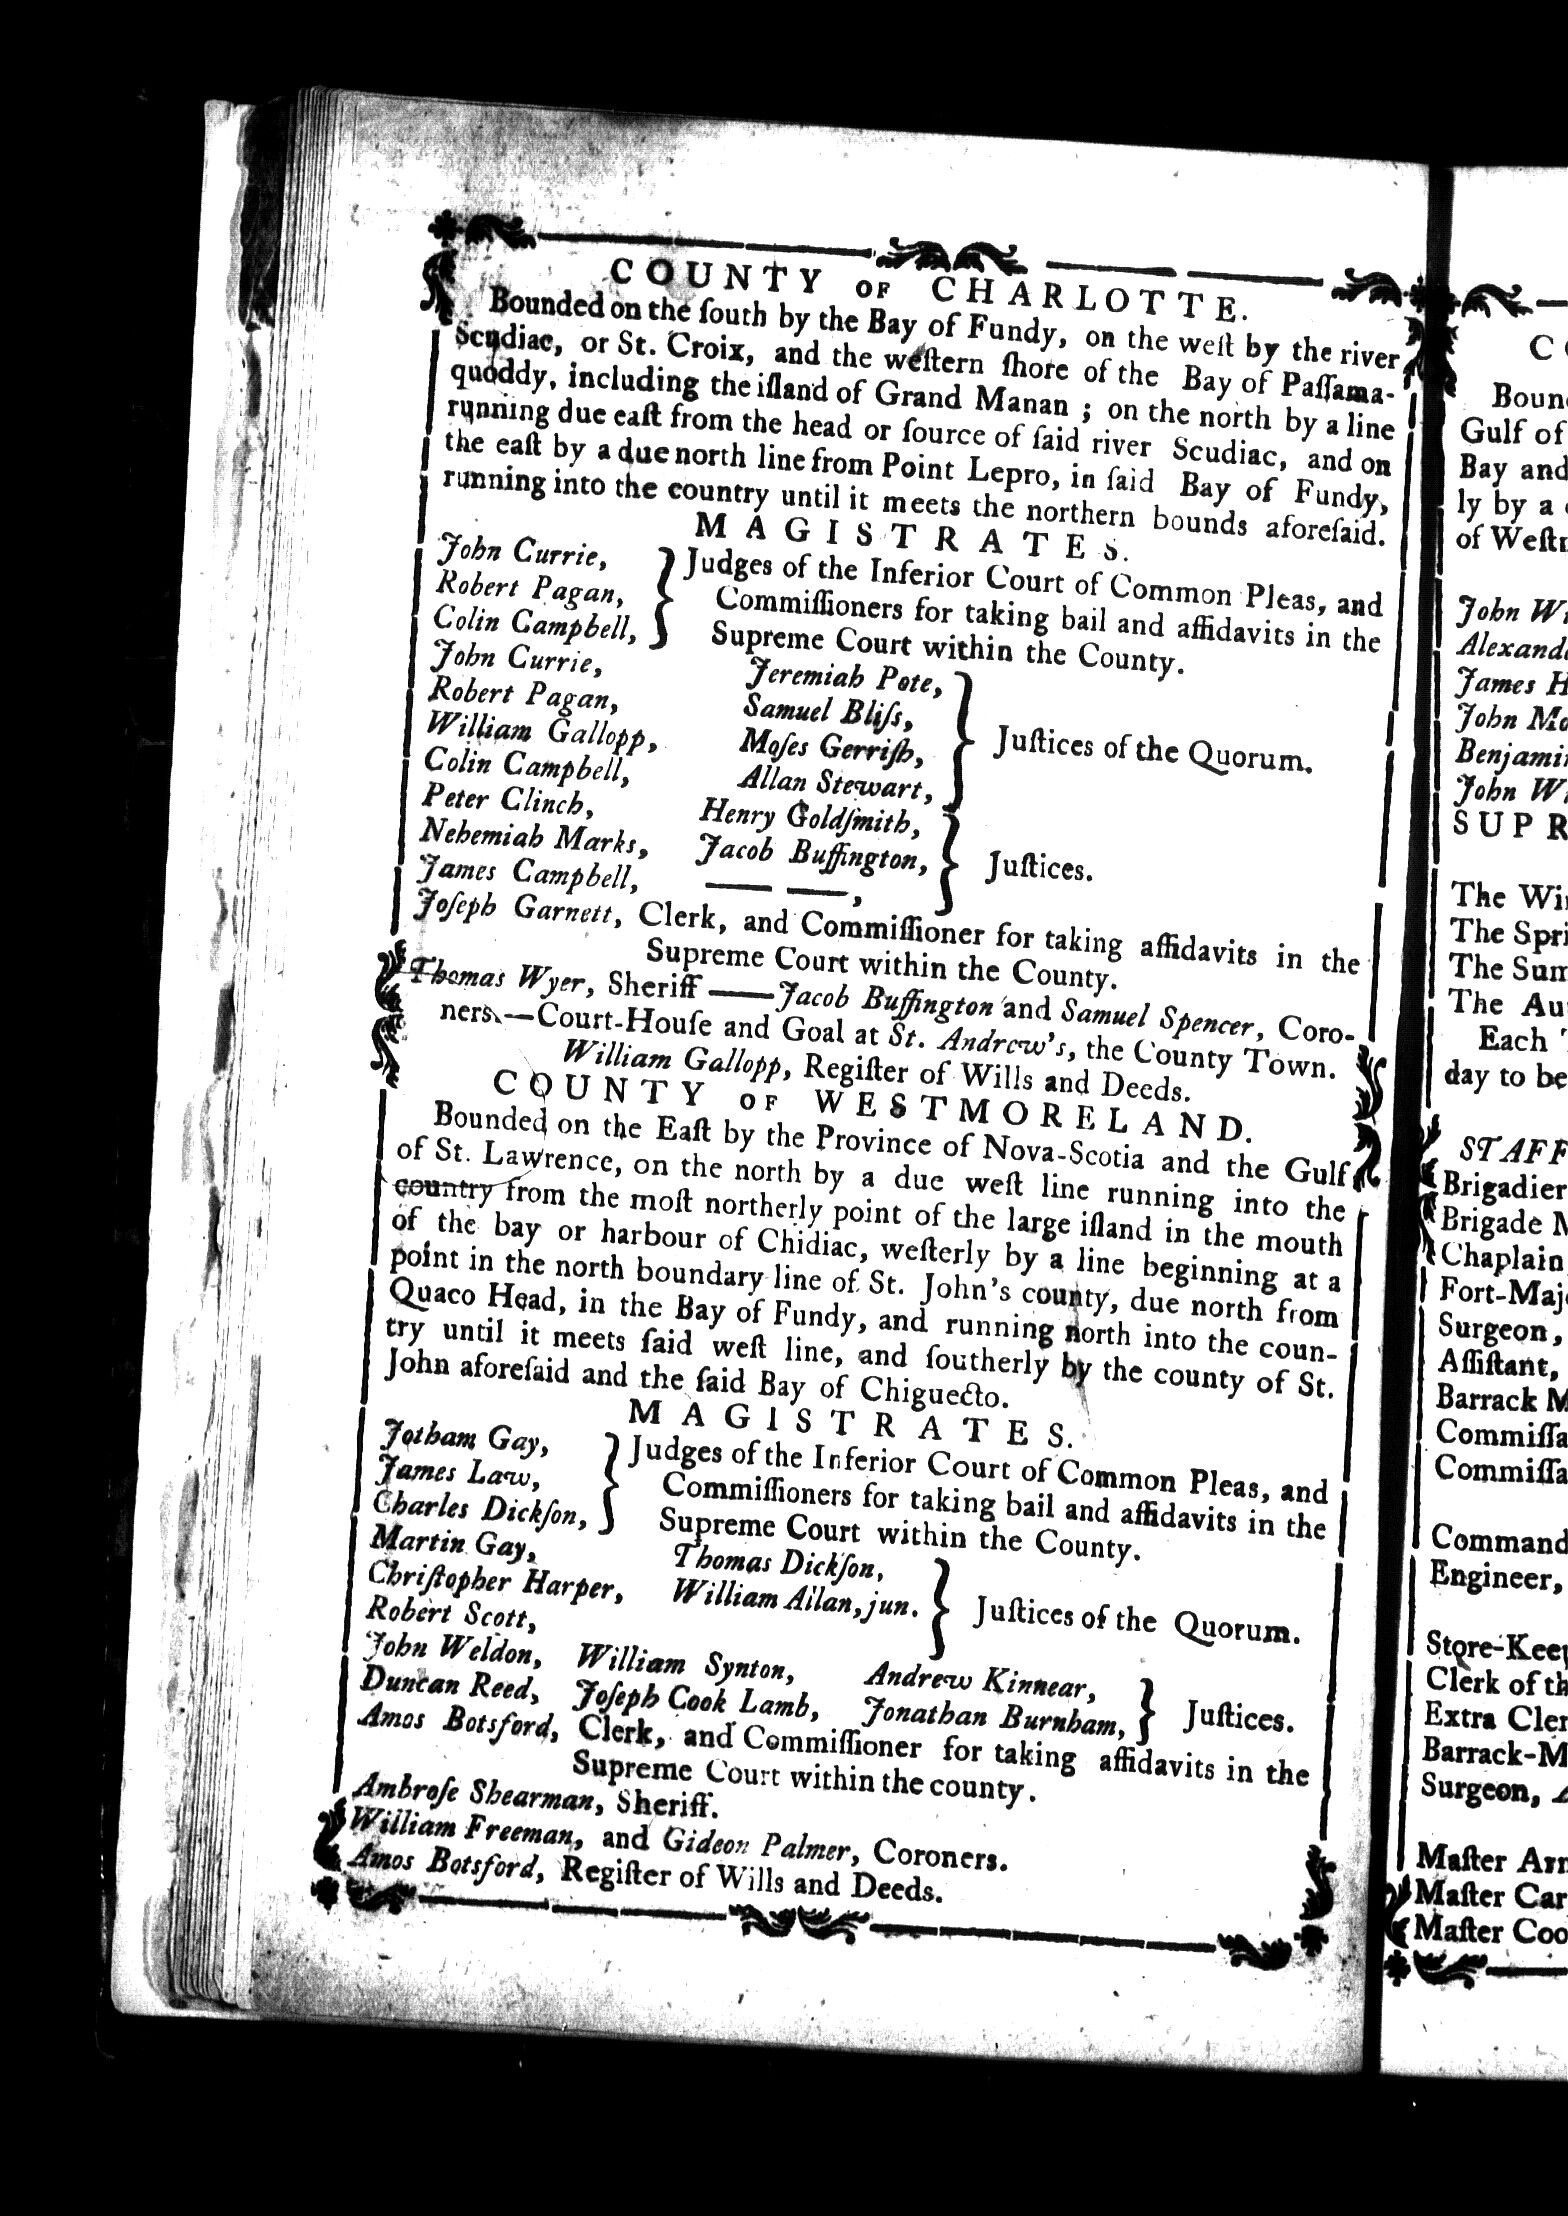 COUNTY OF CHARLOTTE.
Bounded on the ſouth by the Bay of Fundy, on the weſt by the river
Scudiac, or St. Croix, and the weſtern ſhore of the Bay of Paſſama-
quoddy, including the iſland of Grand Manan ; on the north by a line
running due eaſt from the head or ſource of ſaid river Scudiac, and on
the eaſt by a due north line from Point Lepro, in ſaid Bay of Fundy,
running into the country until it meets the northern bounds aforeſaid.
MAGISTRATES.
John Currie,
Robert Pagan,
Colin Campbell,
} Judges of the Inferior Court of Common Pleas, and
Commiſſioners for taking bail and affidavits in the
Supreme Court within the County.
John Currie, Jeremiah Pote,
Robert Pagan, Samuel Bliſs,
William Gallopp, Moſes Gerriſh,
Colin Campbell, Allan Stewart,
} Juſtices of the Quorum.
Peter Clinch, Henry Goldſmith,
Nehemiah Marks, Jacob Buffington,
James Campbell, —— ——,
} Juſtices.
Joſeph Garnett, Clerk, and Commiſſioner for taking affidavits in the
Supreme Court within the County.
Thomas Wyer, Sheriff ——Jacob Buffington and Samuel Spencer, Coro-
ners.—Court-Houſe and Goal at St. Andrew's, the County Town.
William Gallopp, Regiſter of Wills and Deeds.
COUNTY OF WESTMORELAND.
Bounded on the Eaſt by the Province of Nova-Scotia and the Gulf
of St. Lawrence, on the north by a due weſt line running into the
country from the moſt northerly point of the large iſland in the mouth
of the bay or harbour of Chidiac, weſterly by a line beginning at a
point in the north boundary line of St. John's county, due north from
Quaco Head, in the Bay of Fundy, and running north into the coun-
try until it meets ſaid weſt line, and ſoutherly by the county of St.
John aforeſaid and the ſaid Bay of Chiguecto.
MAGISTRATES.
Jotham Gay,
James Law,
Charles Dickſon,
} Judges of the Inferior Court of Common Pleas, and
Commiſſioners for taking bail and affidavits in the
Supreme Court within the County.
Martin Gay, Thomas Dickſon,
Chriſtopher Harper, William Allan, jun.
Robert Scott,
} Juſtices of the Quorum.
John Weldon, William Synton, Andrew Kinnear,
Duncan Reed, Joſeph Cook Lamb, Jonathan Burnham,
} Juſtices.
Amos Botsford, Clerk, and Commiſſioner for taking affidavits in the
Supreme Court within the county.
Ambroſe Shearman, Sheriff.
William Freeman, and Gideon Palmer, Coroners.
Amos Botsford, Regiſter of Wills and Deeds.
Gulf of
Bay and
ly by a
John
James
John
John
The
The
The
The
Each
day to be
STAFF
Brigadier
Brigade
Chaplain
Surgeon,
Aſſiſtant,
Barrack
Engineer,
Clerk of
Extra
Surgeon,
Maſter
Maſter
Maſter